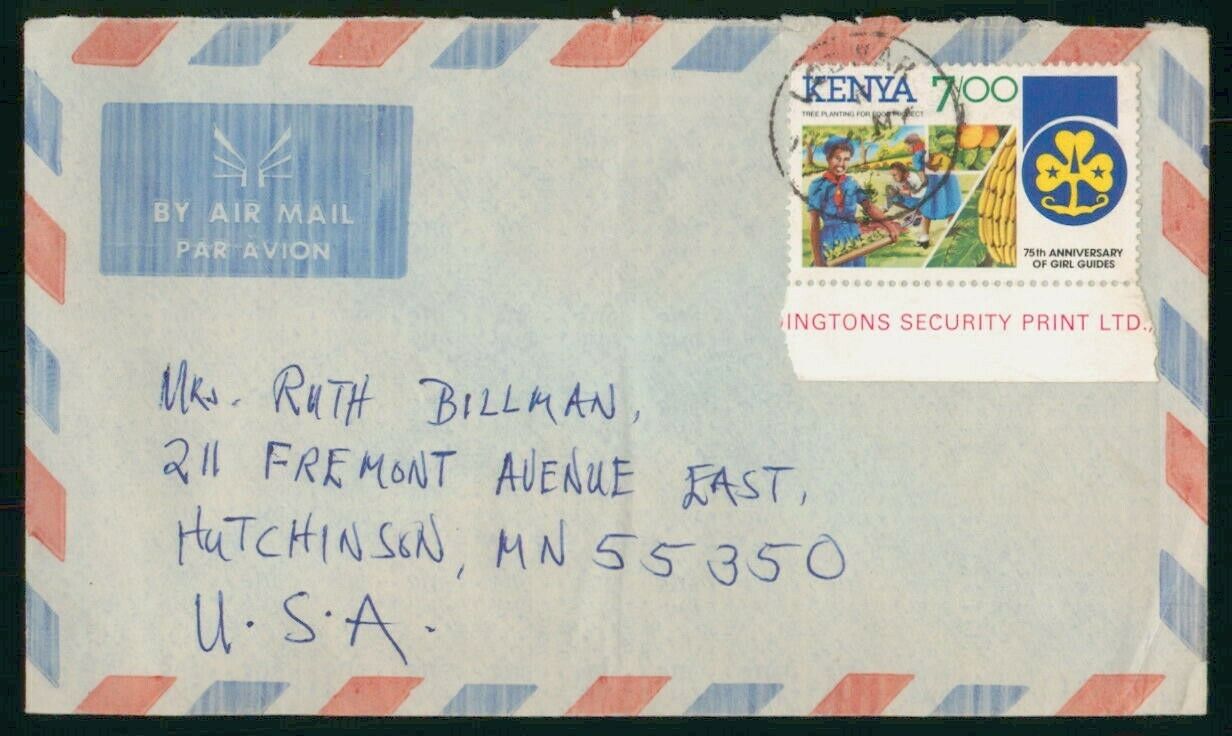 BY AIR MAIL
PAR AVION
KENYA 7/00
TREE PLANTING FOR FOOD PROJECT
75th ANNIVERSARY
OF GIRL GUIDES
INGTONS SECURITY PRINT LTD.,
Mrs. RUTH BILLMAN,
211 FREMONT AVENUE EAST,
HUTCHINSON, MN 55350
U.S.A.